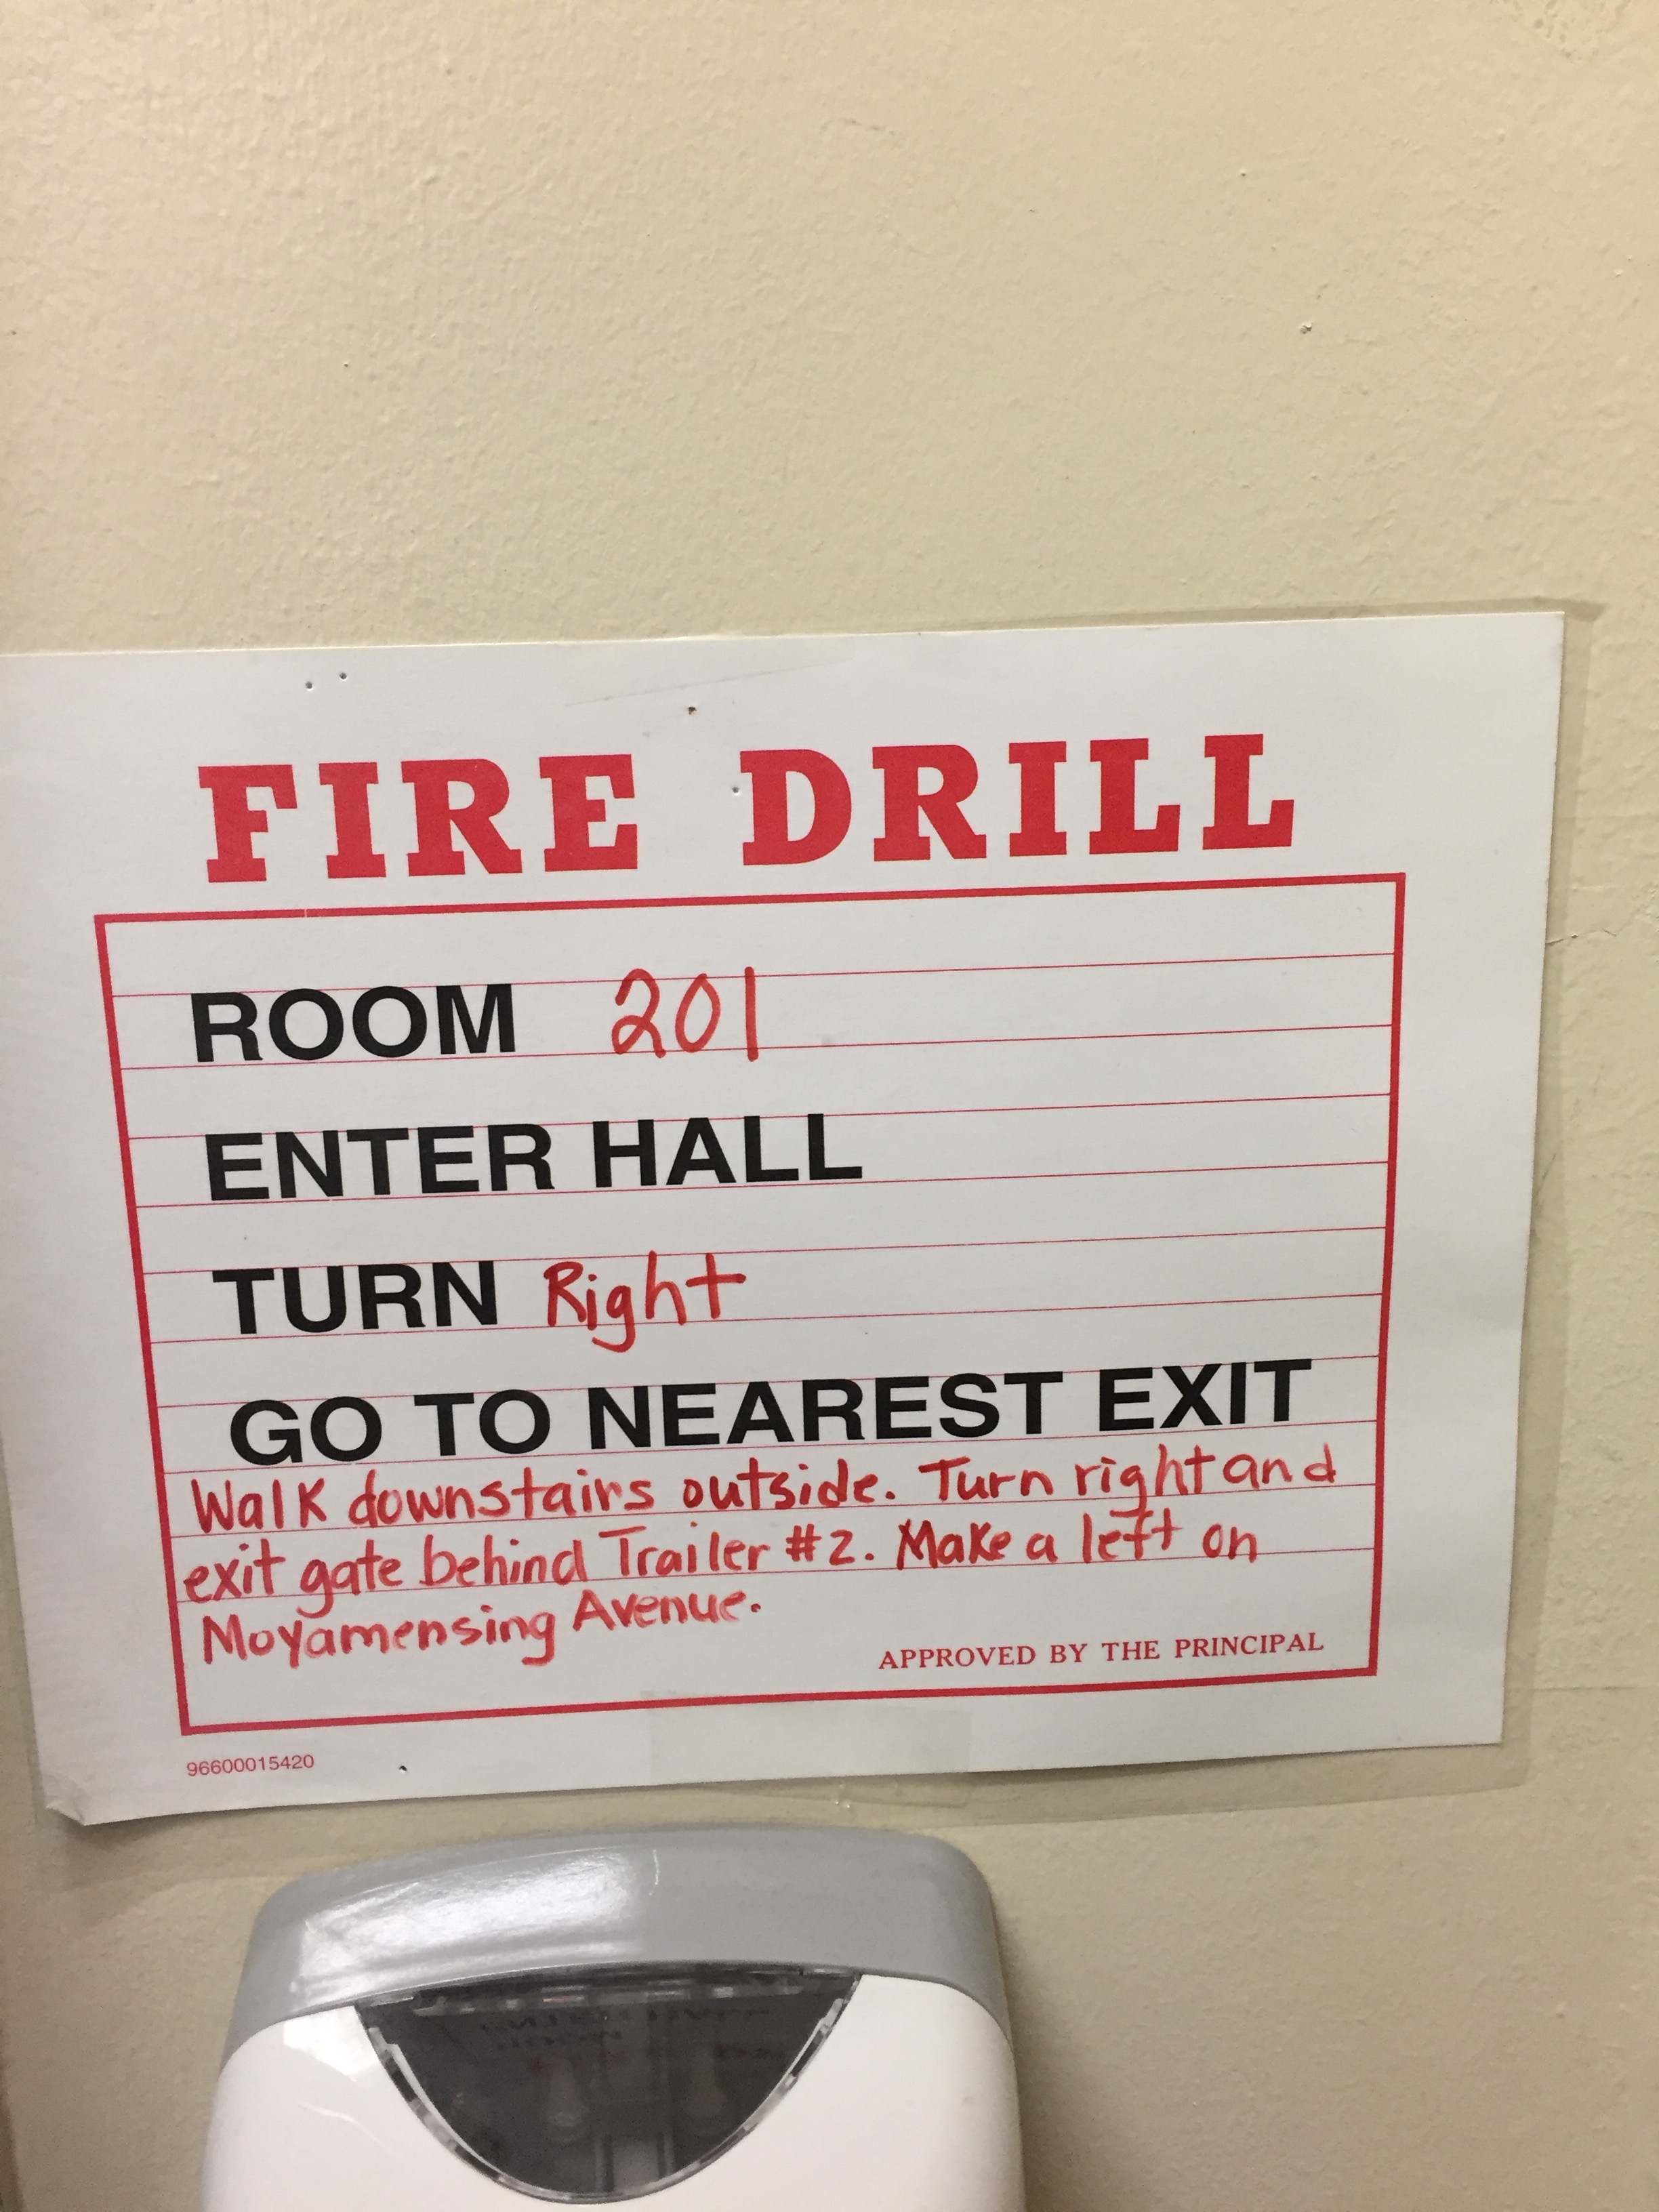 FIRE DRILL
ROOM 201
ENTER HALL
TURN Right
GO TO NEAREST EXIT
Walk downstairs outside. Turn right and
exit gate behind Trailer #2. Make a left on
Moyamensing Avenue.
APPROVED BY THE PRINCIPAL
96600015420